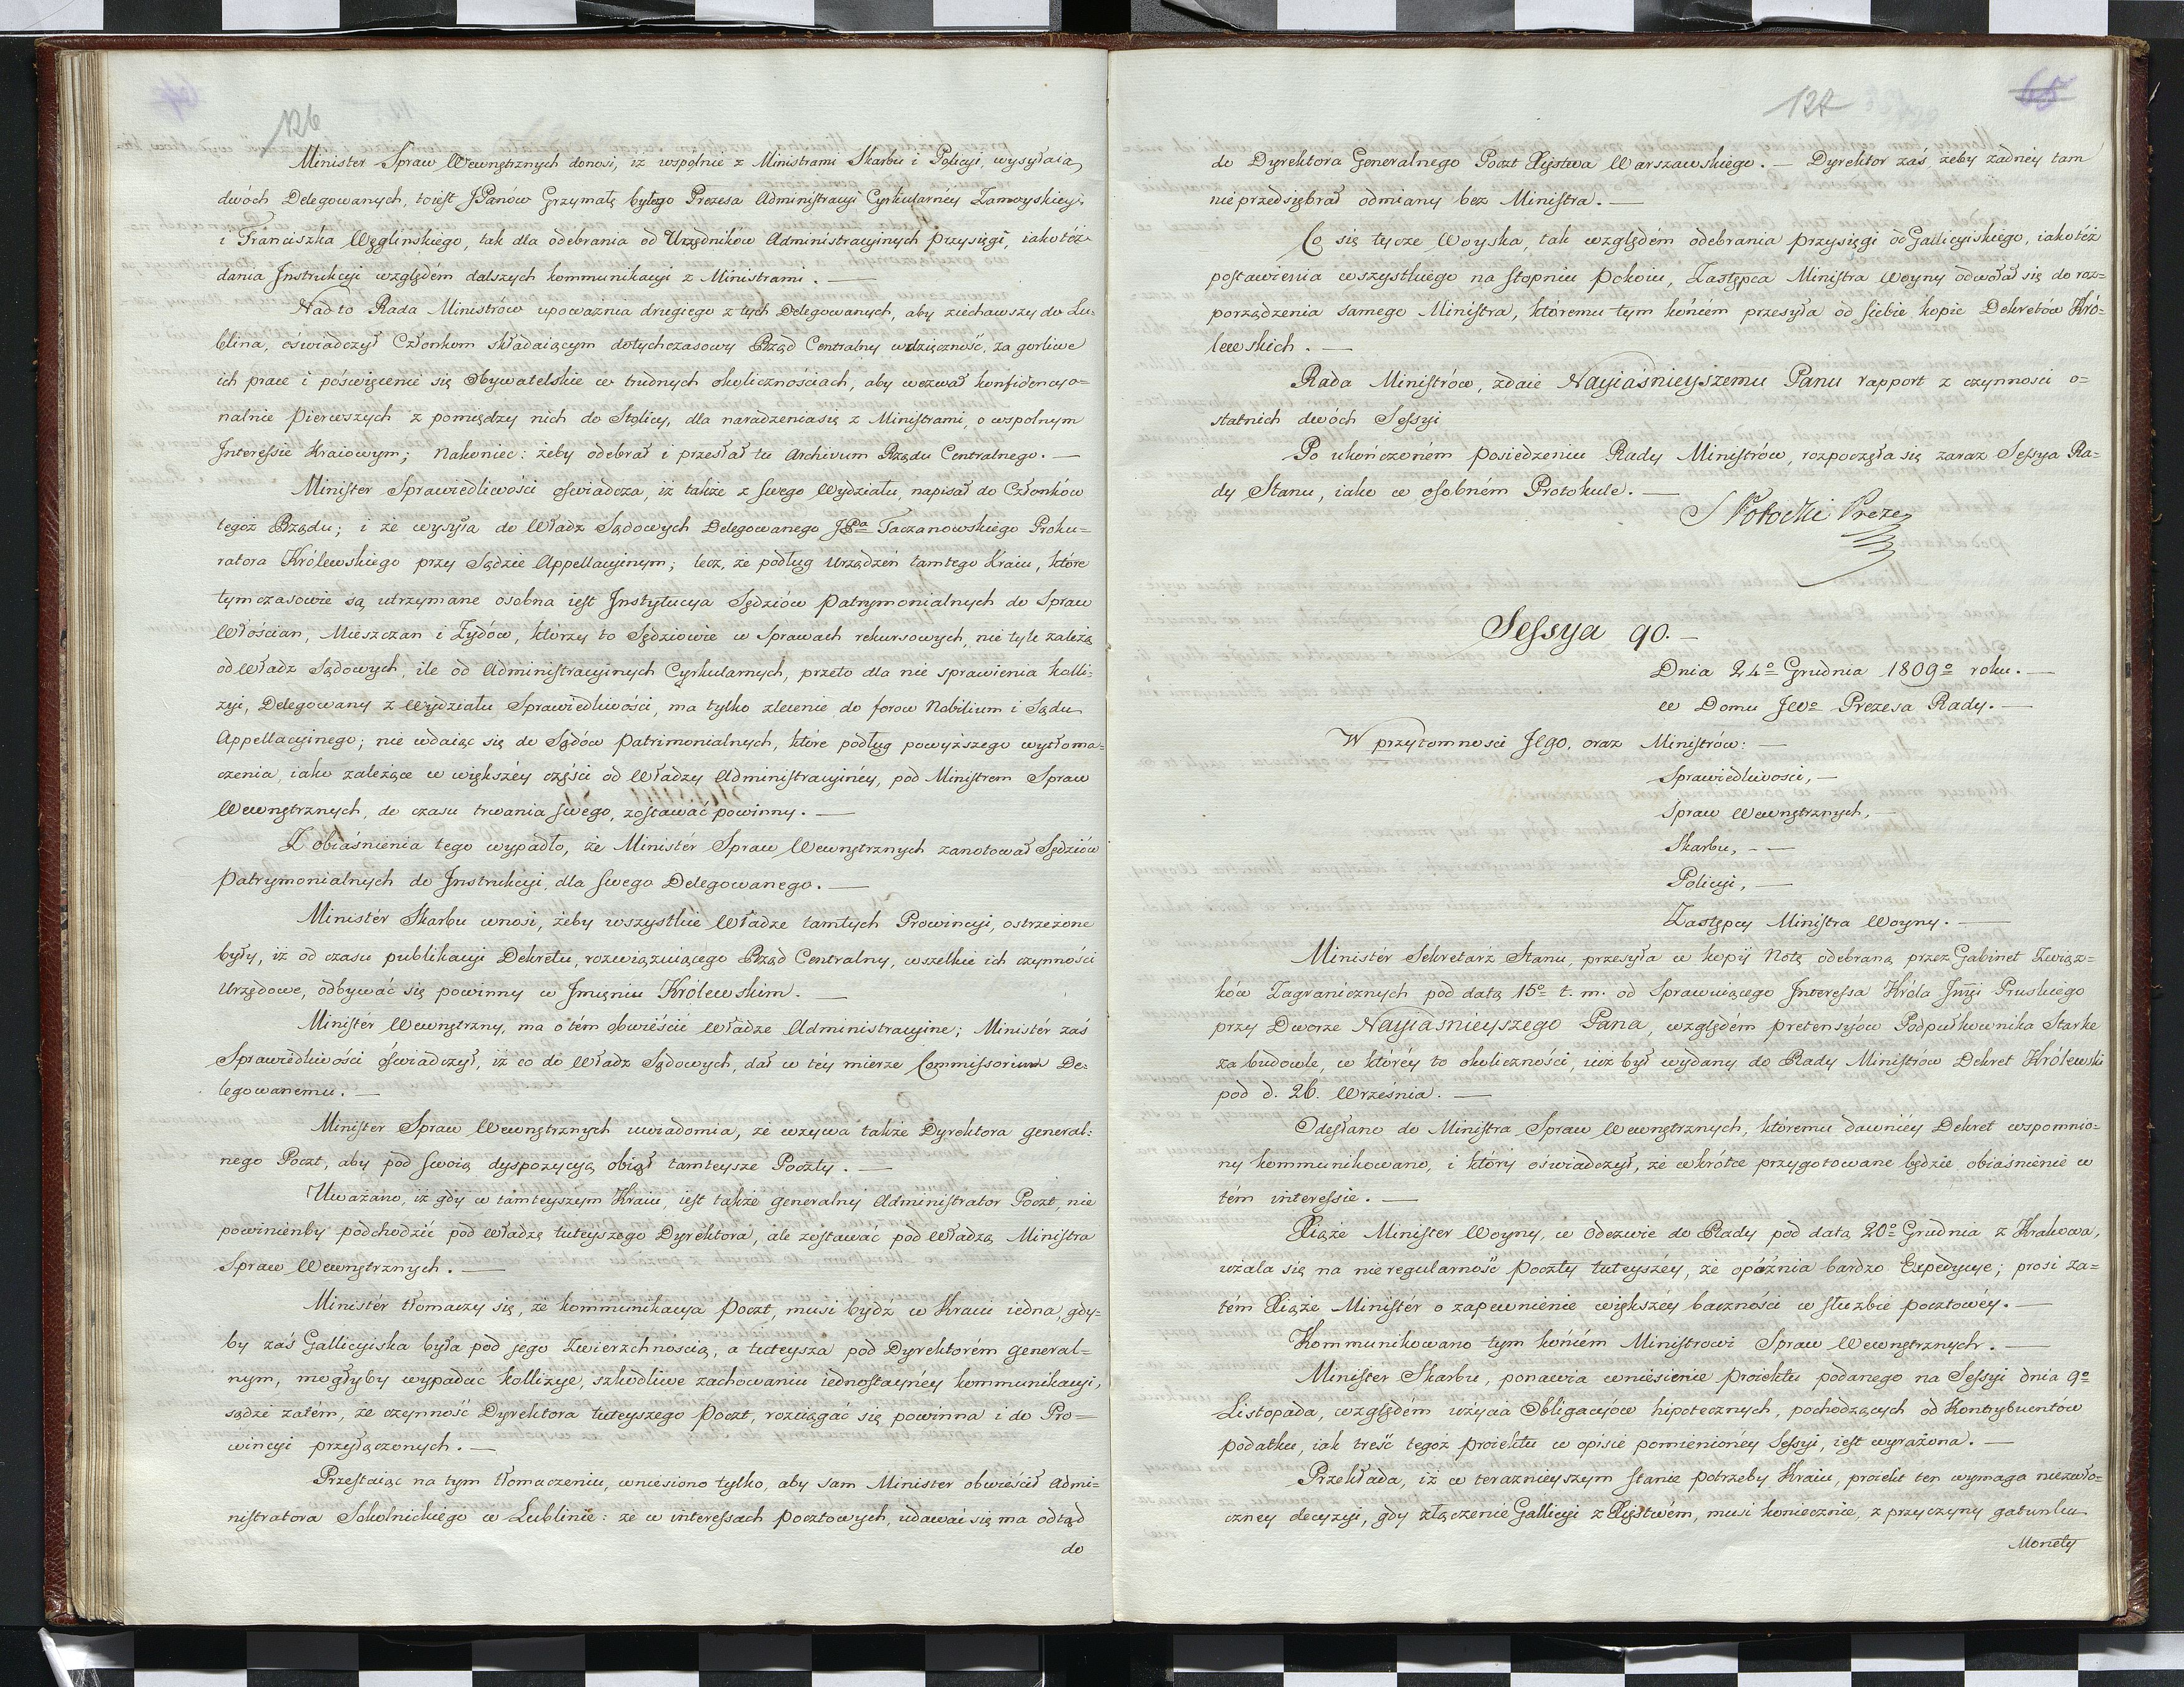 126
Minister Spraw Wewnętrznych donosi, iż wspólnie z Ministrami Skarbu i Policyi, wysyłaią
dwóch Delegowanych, toiest JPanów Grzymałę byłego Prezesa Administracyi Cyrkularnéy Zamoyskiey;
i Franciszka Węglińskiego, tak dla odebrania od Urzędników Administracyinych przysięgi, iako też
dania Instrukcyi względém dalszych kommunikacyi z Ministrami. —
Nad to Rada Ministrów upoważnia drugiego z tych Delegowanych, aby ziechawszy do Lu-
blina, oświadczył Członkom składaiącym dotychczasowy Rząd Centralny wdzięczność, za gorliwe
ich prace i poświęcenie się Obywatelskie w trudnych okolicznościach, aby wezwał konfidencyo-
nalnie pierwszych z pomiędzy nich do Stolicy, dla naradzenia się z Ministrami, o wspolnym
Interessie Kraiowym; nakoniec: żeby odebrał i przesłał tu Archivum Rządu Centralnego. —
Minister Sprawiedliwości oświadcza, iż także z swego Wydziału, napisał do Członków
tegoż Rządu; i że wysyła do Władz Sądowych Delegowanego JPa Taczanowskiego Proku-
ratora Królewskiego przy Sądzie Appellacyinym; lecz, że podług Urządzeń tamtego Kraiu, które
tymczasowie są utrzymane osobna iest Instytucya Sędziów Patrymonialnych do Spraw
Włościan, Mieszczan i Żydów, którzy to Sędziowie w Sprawach rekursowych, nie tyle zależą
od Władz Sądowych, ile od Administracyinych Cyrkularnych, przeto dla nie sprawienia kolli-
zyi, Delegowany z Wydziału Sprawiedliwości, ma tylko zlecenie do forow Nobilium i Sądu
Appellacyinego; nie wdaiąc się do Sądów Patrimonialnych, które podług powyższego wytłoma-
czenia, iako zależące w większéy części od Władzy Administracyinéy, pod Ministrem Spraw
Wewnętrznych, do czasu trwania swego, zostawać powinny. —
Z obiaśnienia tego wypadło, że Ministér Spraw Wewnętrznych zanotował Sędziów
Patrymonialnych do Instrukcyi, dla swego Delegowanego. —
Ministér Skarbu wnosi, żeby wszystkie Władze tamtych Prowincyi, ostrzeżone
były, iż od czasu publikacyi Dekretu, rozwiązuiącego Rząd Centralny, wszelkie ich czynności
Urzędowe, odbywać się powinny w Imięniu Królewskim. —
Ministér Wewnętrzny, ma o tém obwieścić Władze Administracyine; Ministér zaś
Sprawiedliwości oświadczył, iż co do Władz Sądowych, dał w téy mierze Commissorium De-
legowanemu. —
Minister Spraw Wewnętrznych uwiadomia, że wzywa także Dyrektora general-
nego Poczt, aby pod swoią dyspozycyą obiął tamteysze Poczty. —
Uważano, iż gdy w tamteyszym Kraiu, iest także generalny Administrator Poczt, nie
powinienby podchodzić pod władzę tuteyszego Dyrektora, ale zostawać pod władzą Ministra
Spraw Wewnętrznych. —
Ministér tłomaczy się, że kommunikacya Poczt, musi bydź w Kraiu iedna, gdy-
by zaś Gallicyiska była pod jego Zwierzchnością, a tuteysza pod Dyrektorém general-
nym, mogłyby wypadać kollizye, szkodliwe zachowaniu iednostaynéy kommunikacyi,
sądzi zatém, że czynność Dyrektora tuteyszego Poczt, rozciągać się powinna i do Pro-
wincyi przyłączonych. —
Przestaiąc na tym tłomaczeniu, wniesiono tylko, aby sam Minister obwieścił Admi-
nistratora Sokolnickiego w Lublinie: że w interessach pocztowych, udawać się ma odtąd
do
127
65
do Dyrektora Generalnego Poczt Xięstwa Warszawskiego. — Dyrektor zaś żeby żadnéy tam
nie przedsiębrał odmiany bez Ministra. —
Co się tycze Woyska, tak względém odebrania przysięgi od Gallicyiskiego, iako też
postawienia wszystkiego na stopniu pokoiu, Zastępca Ministra Woyny odwołał się do roz-
porządzenia samego Ministra, któremu tym końcém przesyła od siebie kopie Dekretów Kró-
lewskich. —
Rada Ministrów, zdaie Nayiaśnieyszemu Panu rapport z czynnosci o-
statnich dwóch Sessyi
Po ukończoném posiedzeniu Rady Ministrów, rozpoczęła się zaraz Sessya Ra-
dy Stanu, iako w osobném Protokule. —
S Potocki Prezes
Sessya 90. —
Dnia 24o Grudnia 1809o roku. —
w Domu JWo Prezesa Rady. —
W przytomnosci Jego, oraz Ministrów: —
Sprawiedliwosci, —
Spraw Wewnętrznych, —
Skarbu, — —
Policyi, —
Zastępcy Ministra Woyny. —
Ministér Sekretarz Stanu, przesyła w kopij Notę odebraną przez Gabinet Związ-
ków Zagranicznych pod datą 15o t. m. od Sprawuiącego Interessa Króla Jmci Pruskiego
przy Dworze Nayiaśnieyszego Pana, względém pretensyów Podpułkownika Starke
za budowle, w któréy to okoliczności, iuż był wydany do Rady Ministrów Dekret Królewski
pod d. 26. Września. —
Odesłano do Ministra Spraw Wewnętrznych, któremu dawniéy Dekret wspomnio-
ny kommunikowano, i który oświadczył, że wkrótce przygotowane będzie obiaśnienie w
tém interessie. —
Xiąże Minister Woyny, w odezwie do Rady pod datą 20o Grudnia z Krakowa,
użala się na nieregularność poczty tuteyszéy, że opóźnia bardzo Expedycye; prosi za-
tém Xiąże Ministér o zapewnienie większéy baczności w służbie pocztowéy. —
Kommunikowano tym końcém Ministrowi Spraw Wewnętrznych. —
Minister Skarbu, ponawia wniesienie proiektu podanego na Sessyi dnia 9o
Listopada, względém użycia Obligacyów hipotecznych, pochodzących od Kontrybuentów
podatku, iak treść tegoż proiektu w opisie pomienionéy Sessyi, iest wyrażona. —
Przekłada, iż w teraznieyszym stanie potrzeby Kraiu, proiekt ten wymaga niezwło-
czney decyzyi, gdy złączenie Gallicyi z Xięstwém, musi koniecznie, z przyczyny gatunku
Monety